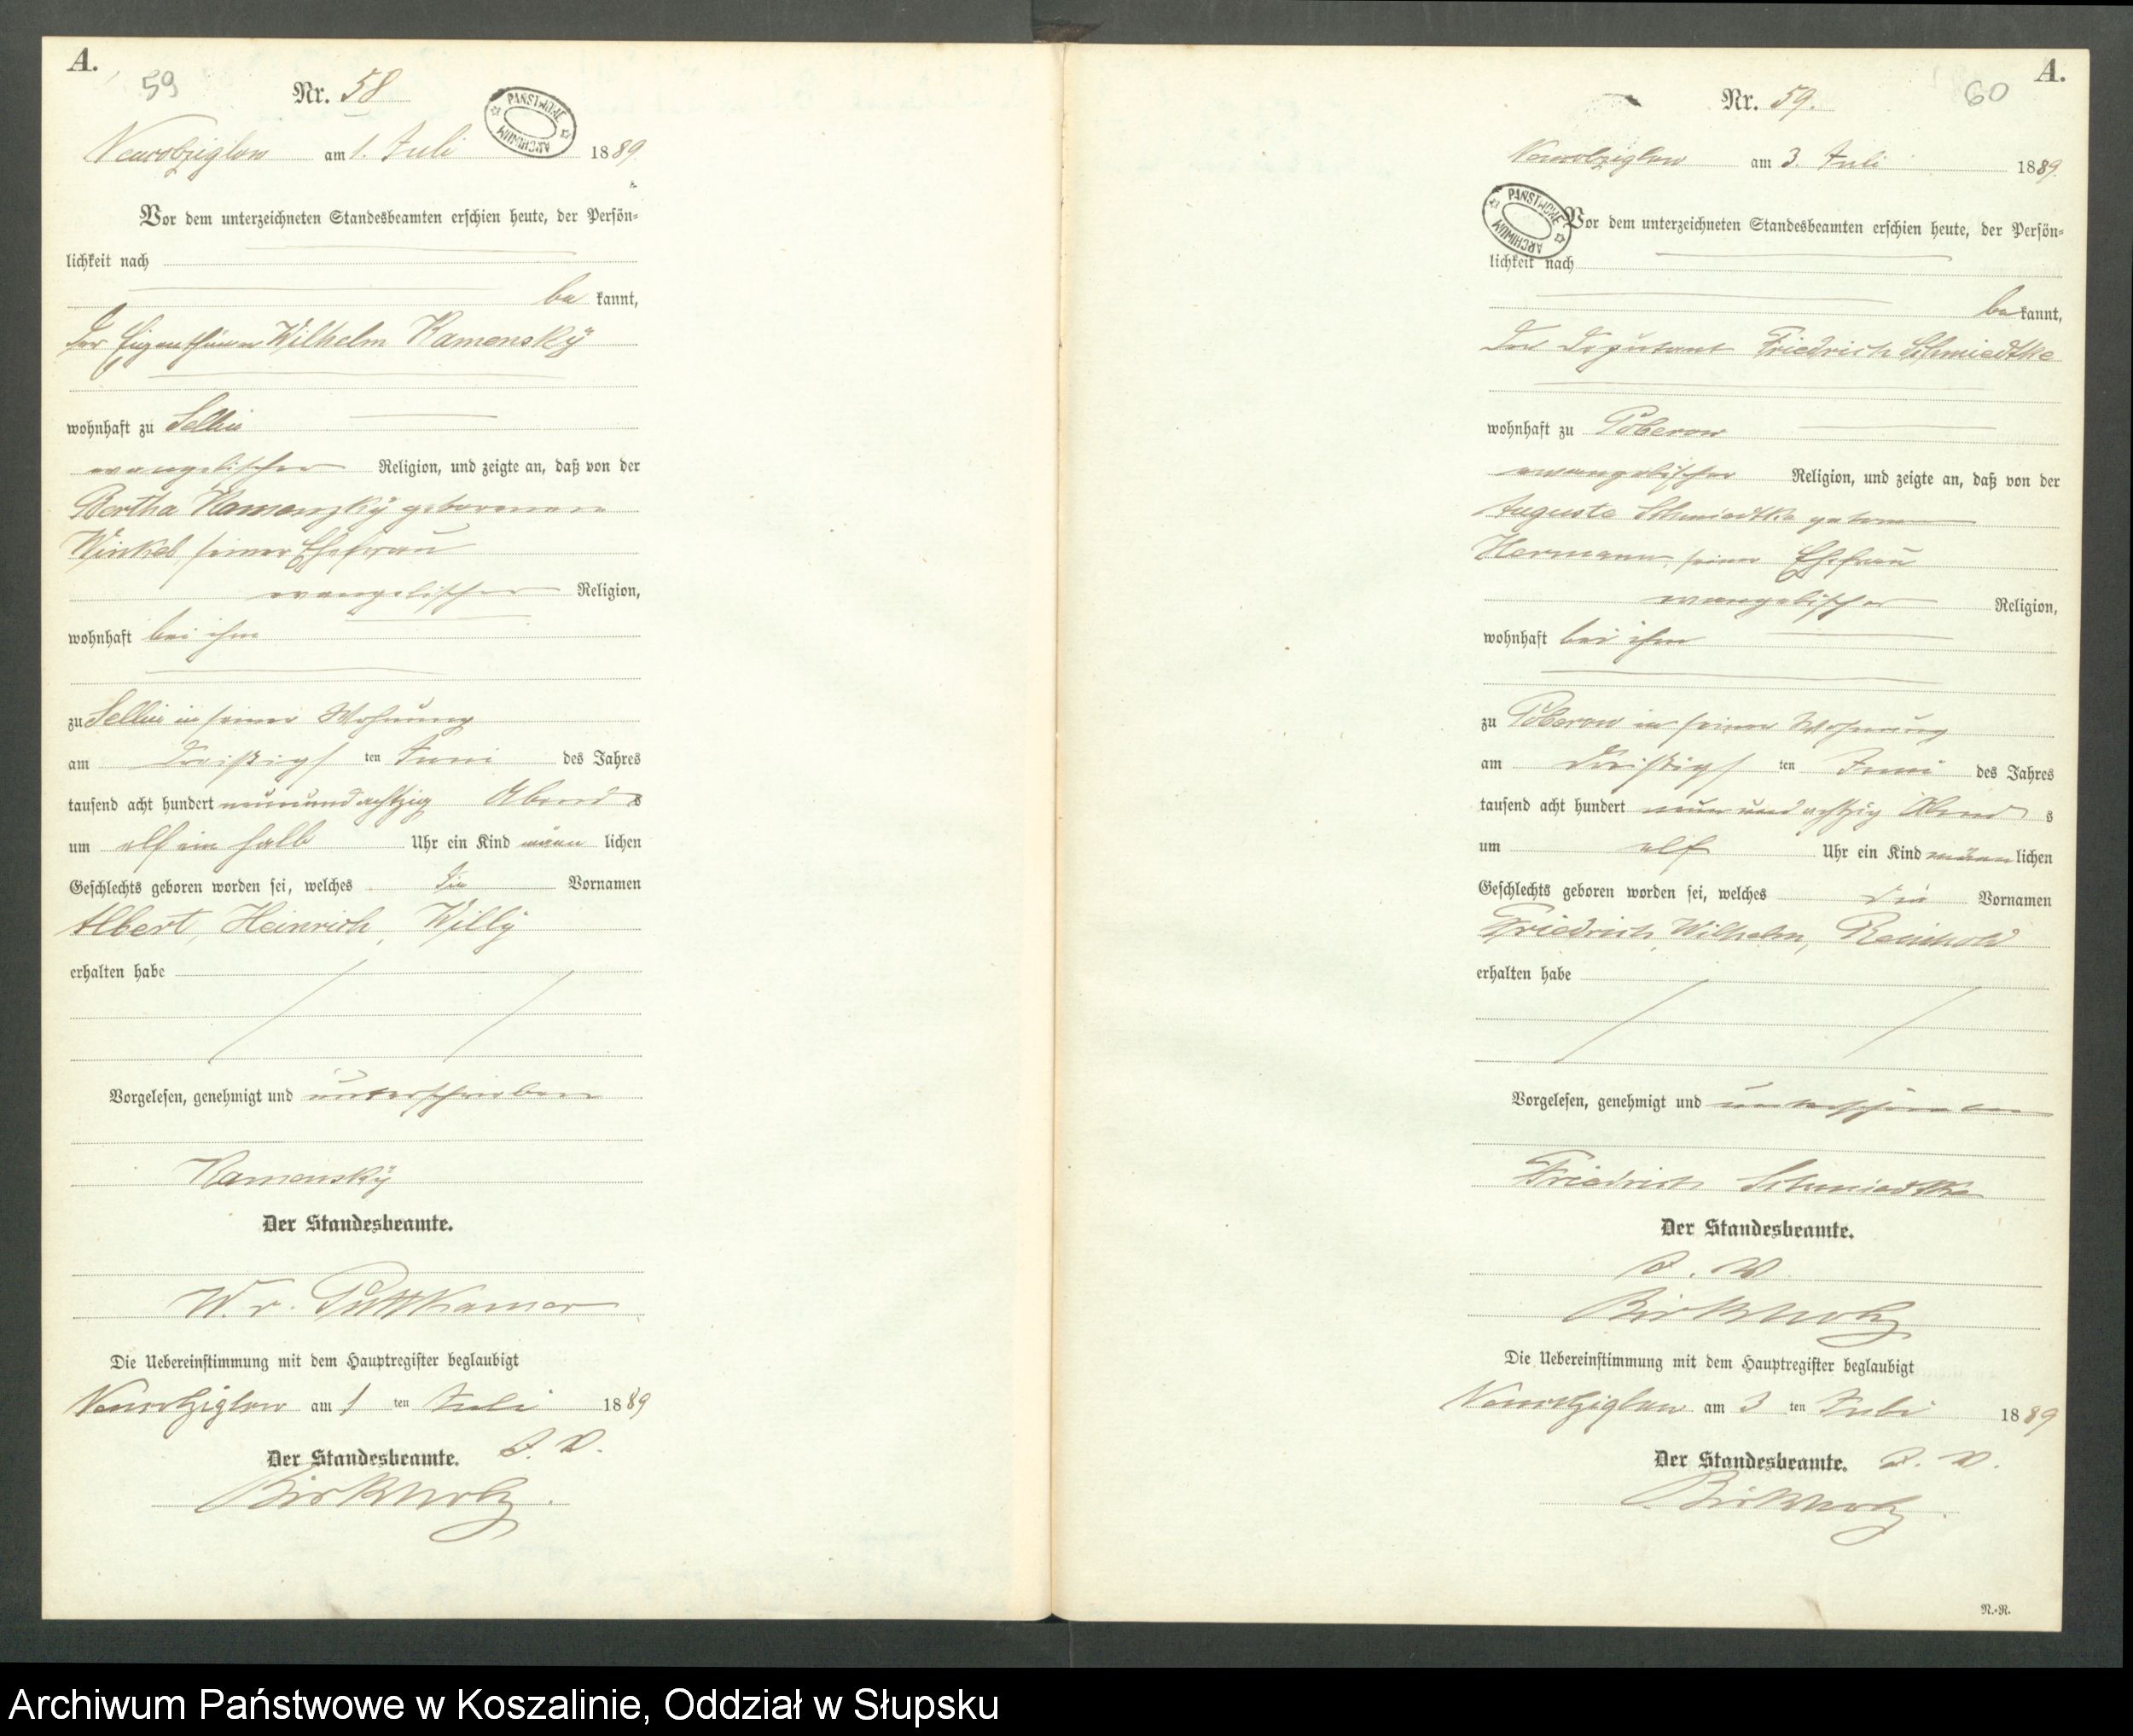 A.
59
Nr. 58
PAŃSTWOWE ARCHIWUM
Neukolziglow am 1. Juli 1889
Vor dem unterzeichneten Standesbeamten erschien heute, der Persön-
lichkeit nach
be kannt,
der Eigenthümer Wilhelm Kamensky
wohnhaft zu Sellin
evangelischer Religion, und zeigte an, daß von der
Bertha Kamensky geborenen
Winkel, seiner Ehefrau
evangelischer Religion,
wohnhaft bei ihm
zu Sellin in seiner Wohnung
am dreißigs ten Juni des Jahres
tausend acht hundert neunundachtzig Abends
um elf ein halb Uhr ein Kind männ lichen
Geschlechts geboren worden sei, welches die Vornamen
Albert, Heinrich, Willy
erhalten habe
Vorgelesen, genehmigt und unterschrieben
Kamensky
Der Standesbeamte.
W. v. Puttkamer
Die Uebereinstimmung mit dem Hauptregister beglaubigt
am 1 ten Juli 1889
Der Standesbeamte. J. V.
Birkholz.
A.
60
Nr. 59.
am 3. Juli 1889.
PAŃSTWOWE ARCHIWUM
Vor dem unterzeichneten Standesbeamten erschien heute, der Persön-
lichkeit nach
be kannt,
Der Deputant Friedrich Schmiedtke
wohnhaft zu Poberow
evangelischer Religion, und zeigte an, daß von der
Auguste Schmiedtke geborene
Hermann, seiner Ehefrau
evangelischer Religion,
wohnhaft bei ihm
zu Poberow in seiner Wohnung
am dreißigs ten Juni des Jahres
tausend acht hundert neun und achtzig Abend s
um elf Uhr ein Kind männ lichen
Geschlechts geboren worden sei, welches die Vornamen
Friedrich, Wilhelm, Reinhold
erhalten habe
Vorgelesen, genehmigt und unterschrieben
Friedrich Schmiedtke
Der Standesbeamte.
J. V.
Birkholz
Die Uebereinstimmung mit dem Hauptregister beglaubigt
am 3 ten Juli 1889
Der Standesbeamte. J. V.
Birkholz.
N.-R.
Archiwum Państwowe w Koszalinie, Oddział w Słupsku